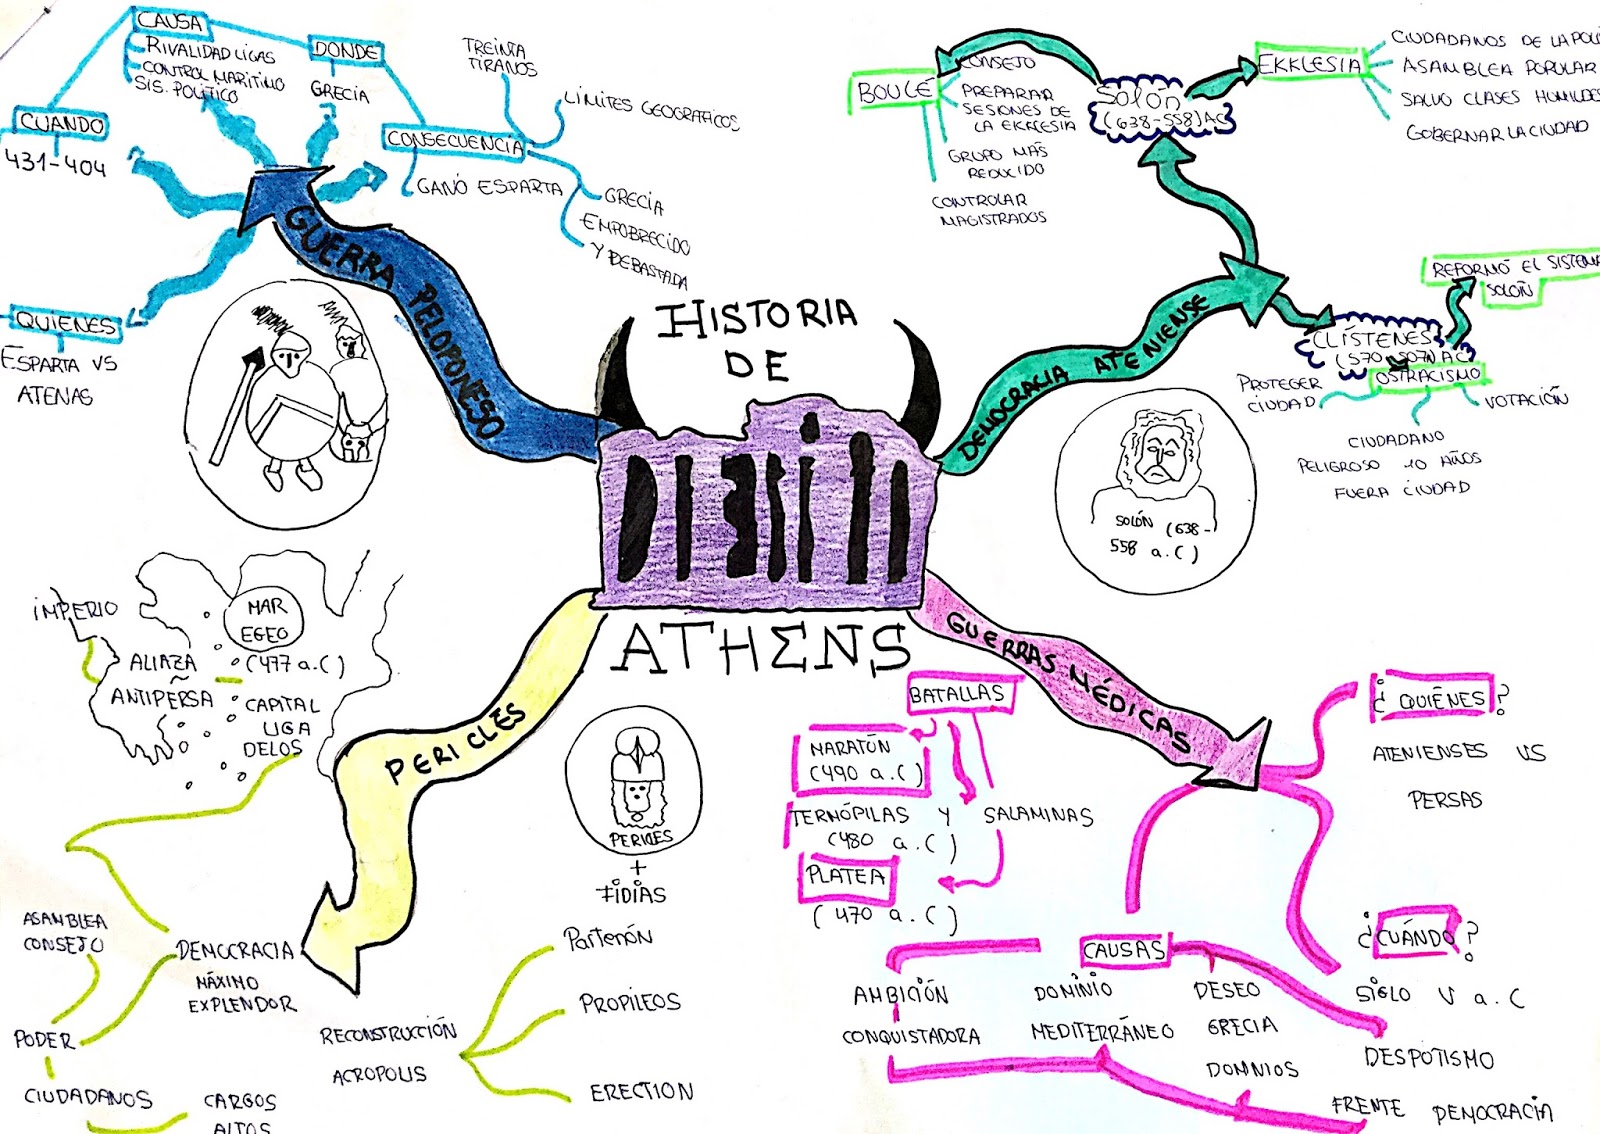 HISTORIA
DE
ATHENS
GUERRA PELOPONESO
CAUSA
RIVALIDAD LIGAS
CONTROL MARITIMO
SIS. POLITICO
DONDE
GRECIA
CUANDO
431-404
QUIENES
ESPARTA VS
ATENAS
CONSECUENCIA
TREINTA
TIRANOS
LÍMITES GEOGRAFICOS
GANÓ ESPARTA
GRECIA
EMPOBRECIDO
Y DEBASTADA
DEMOCRACIA ATENIENSE
SOLÓN
(638-558) AC
BOULÉ
CONSEJO
PREPARAR
SESIONES DE
LA EKKLESIA
GRUPO MÁS
REDUCIDO
CONTROLAR
MAGISTRADOS
EKKLESIA
CIUDADANOS DE LA POLI
ASAMBLEA POPULAR
SALVO CLASES HUMILDES
GOBERNAR LA CIUDAD
CLÍSTENES
AC
REFORMÓ EL SISTEMA
SOLÓN
OSTRACISMO
PROTEGER
CIUDAD
CIUDADANO
PELIGROSO 10 AÑOS
FUERA CIUDAD
VOTACIÓN
SOLÓN (638-
558 a.C)
PERICLES
IMPERIO
MAR
EGEO
(477 a.C)
ALIAZA
ANTIPERSA
CAPITAL
LIGA
DELOS
PERICLES
+
FIDIAS
ASAMBLEA
CONSEJO
DEMOCRACIA
MÁXIMO
EXPLENDOR
PODER
CIUDADANOS
CARGOS
ALTOS
RECONSTRUCCIÓN
ACROPOLIS
Partenón
PROPILEOS
ERECTION
GUERRAS MÉDICAS
BATALLAS
MARATÓN
(490 a.C)
TERMÓPILAS Y SALAMINAS
(480 a.C)
PLATEA
(470 a.C)
¿QUIÉNES?
ATENIENSES VS
PERSAS
¿CUÁNDO?
SIGLO V a.C
CAUSAS
AMBICIÓN
CONQUISTADORA
DOMINIO
MEDITERRÁNEO
DESEO
GRECIA
DOMNIOS
DESPOTISMO
FRENTE DEMOCRACIA